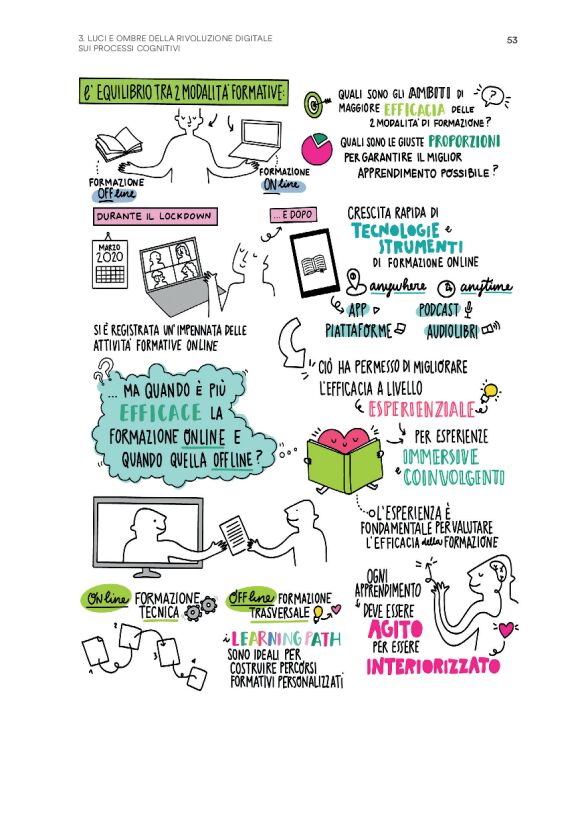 3. LUCI E OMBRE DELLA RIVOLUZIONE DIGITALE
SUI PROCESSI COGNITIVI
53
E' EQUILIBRIO TRA 2 MODALITA' FORMATIVE:
FORMAZIONE
OFFline
FORMAZIONE
ONline
QUALI SONO GLI AMBITI DI
MAGGIORE EFFICACIA DELLE
2 MODALITA' DI FORMAZIONE?
?
QUALI SONO LE GIUSTE PROPORZIONI
PER GARANTIRE IL MIGLIOR
APPRENDIMENTO POSSIBILE?
DURANTE IL LOCKDOWN
MARZO
2020
SI É REGISTRATA UN'IMPENNATA DELLE
ATTIVITA' FORMATIVE ONLINE
... E DOPO
CRESCITA RAPIDA DI
TECNOLOGIE e
STRUMENTI
DI FORMAZIONE ONLINE
anywhere anytime
APP PODCAST
PIATTAFORME AUDIOLIBRI
CIÒ HA PERMESSO DI MIGLIORARE
L'EFFICACIA A LIVELLO
ESPERIENZIALE
PER ESPERIENZE
IMMERSIVE
e COINVOLGENTI
?
... MA QUANDO È PIÙ
EFFICACE LA
FORMAZIONE ONLINE E
QUANDO QUELLA OFFLINE?
L'ESPERIENZA È
FONDAMENTALE PER VALUTARE
L'EFFICACIA della FORMAZIONE
ONline FORMAZIONE
TECNICA
1
2
3
4
OFFline FORMAZIONE
TRASVERSALE
i LEARNING PATH
SONO IDEALI PER
COSTRUIRE PERCORSI
FORMATIVI PERSONALIZZATI
OGNI
APPRENDIMENTO
DEVE ESSERE
AGITO
PER ESSERE
INTERIORIZZATO